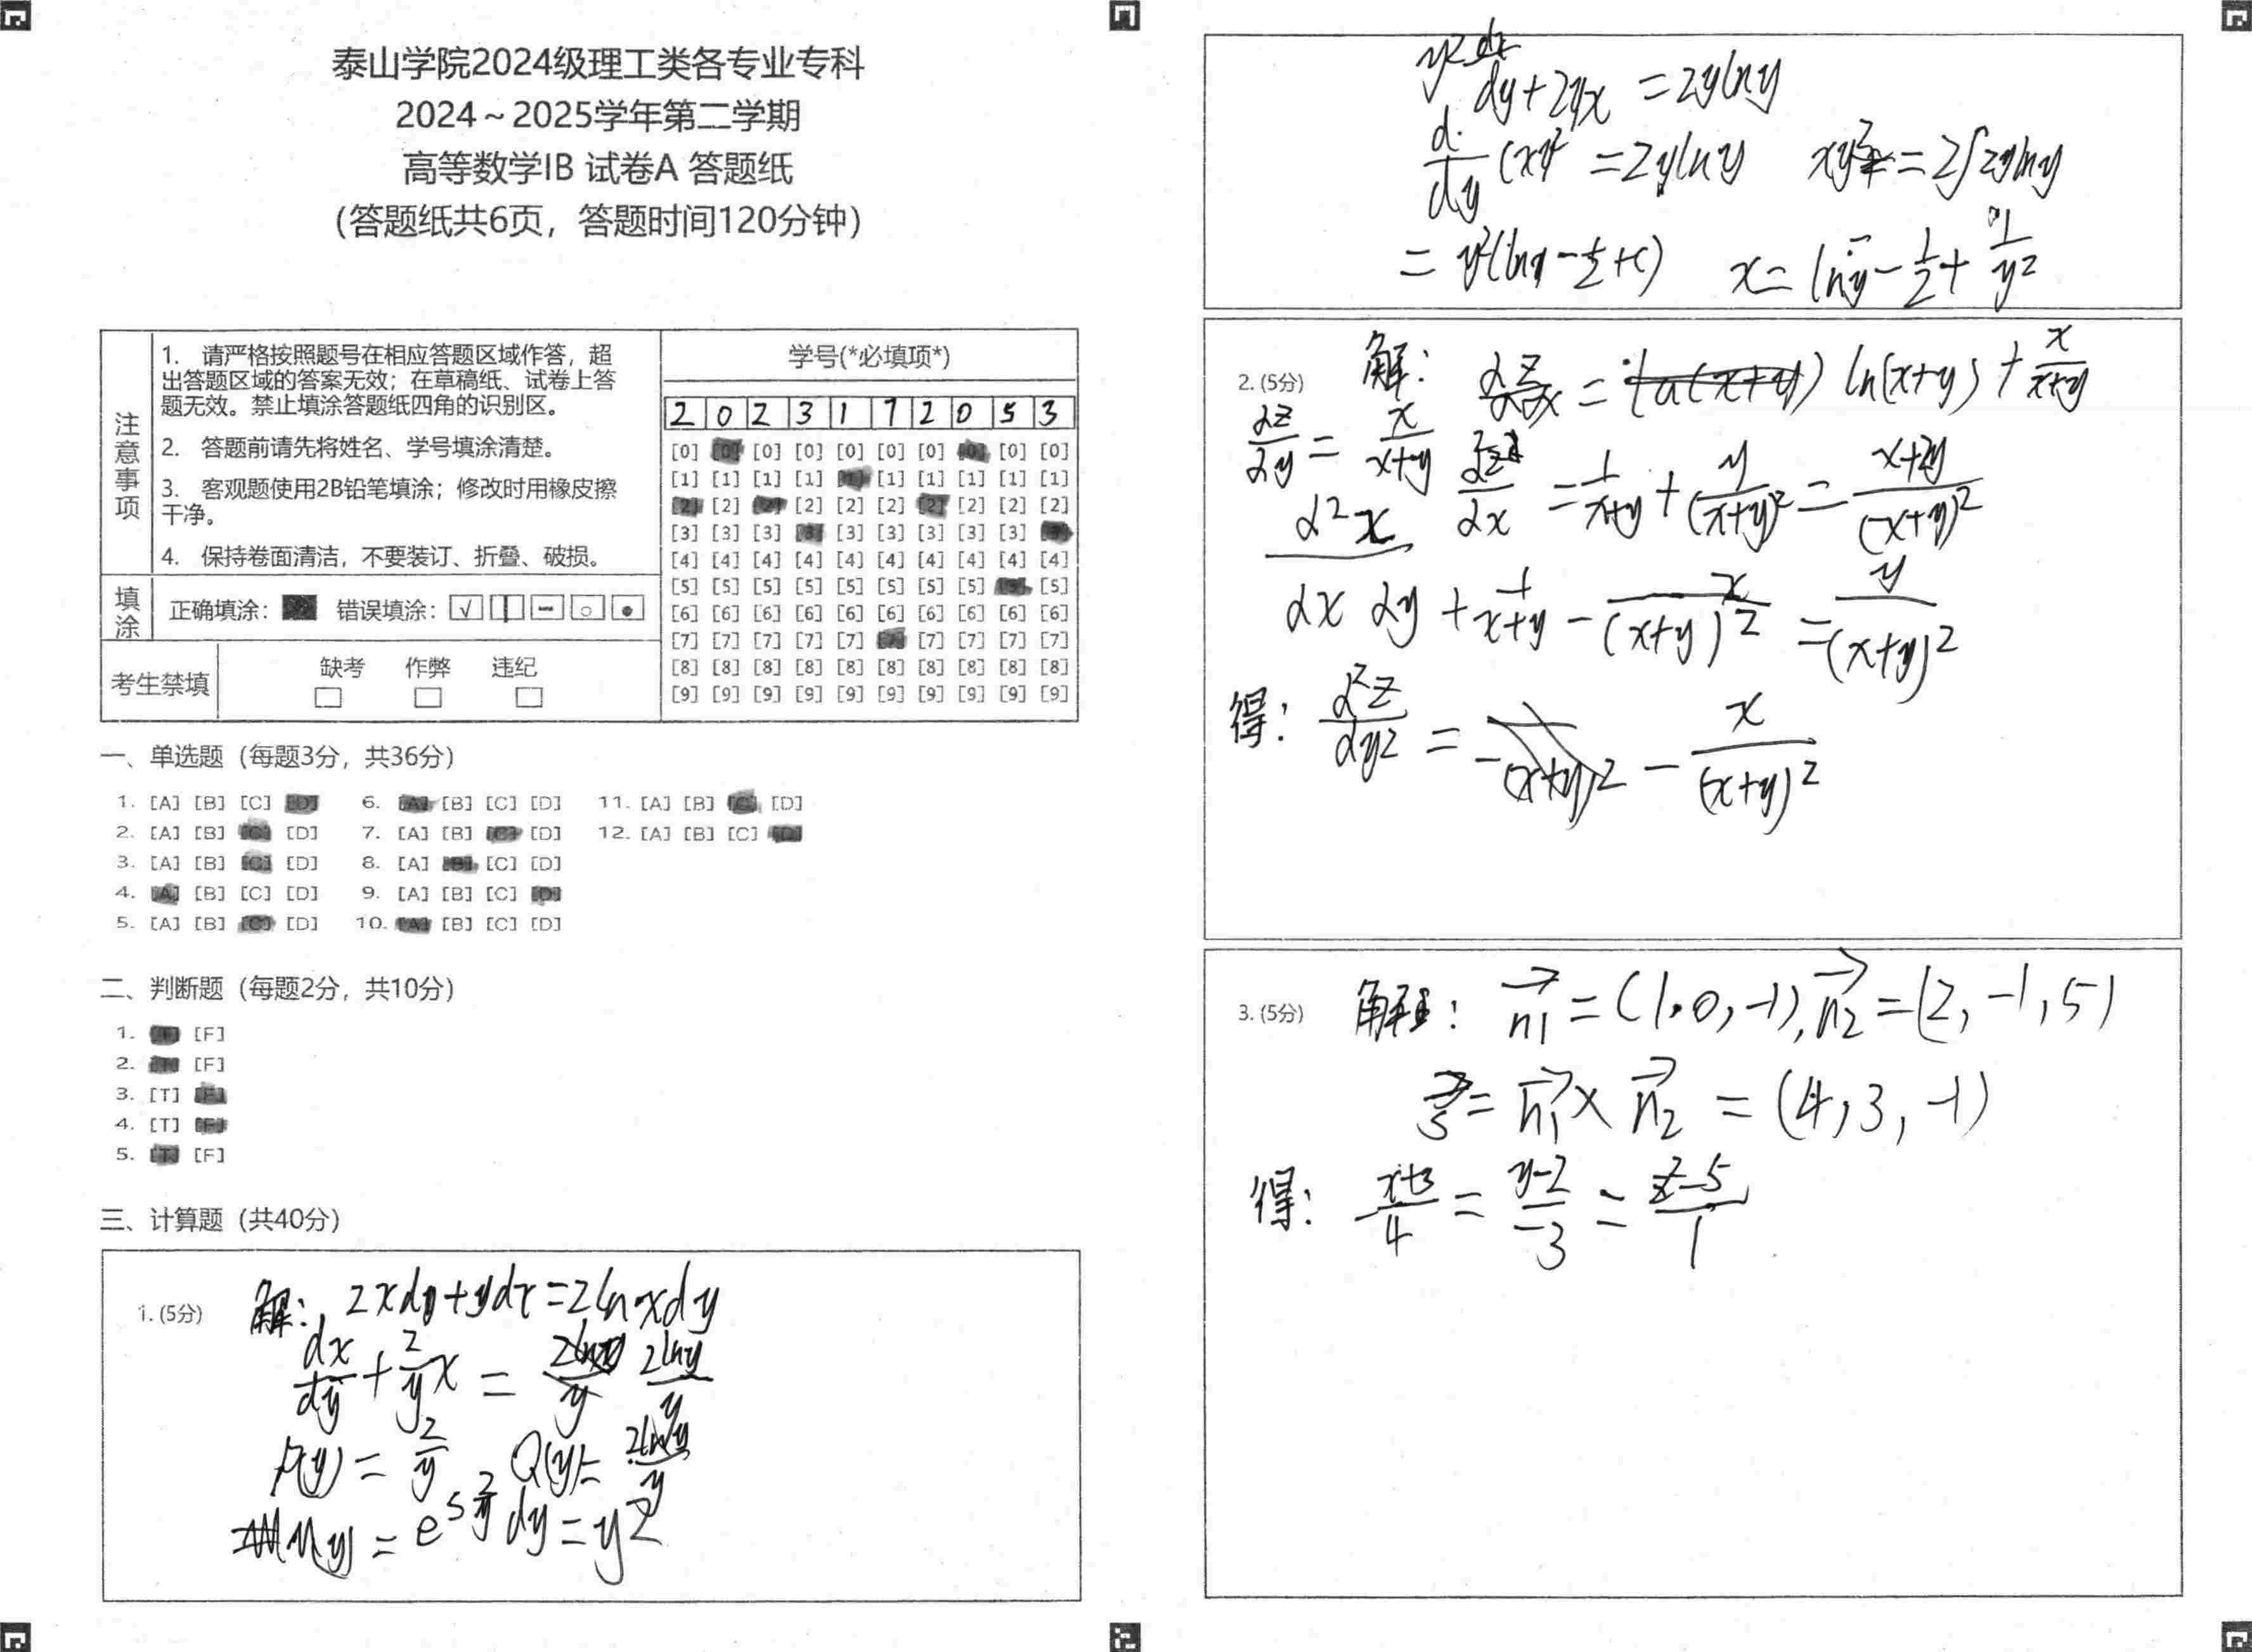 泰山学院2024级理工类各专业专科
2024～2025学年第二学期
高等数学IB 试卷A 答题纸
（答题纸共6页，答题时间120分钟）
注意事项
1. 请严格按照题号在相应答题区域作答，超
出答题区域的答案无效；在草稿纸、试卷上答
题无效。禁止填涂答题纸四角的识别区。
2. 答题前请先将姓名、学号填涂清楚。
3. 客观题使用2B铅笔填涂；修改时用橡皮擦
干净。
4. 保持卷面清洁，不要装订、折叠、破损。
填涂 正确填涂： 错误填涂：
考生禁填 缺考 作弊 违纪
学号(*必填项*)
2 0 2 3 1 7 2 0 5 3
[0] [0] [0] [0] [0] [0] [0] [0] [0] [0]
[1] [1] [1] [1] [1] [1] [1] [1] [1] [1]
[2] [2] [2] [2] [2] [2] [2] [2] [2] [2]
[3] [3] [3] [3] [3] [3] [3] [3] [3] [3]
[4] [4] [4] [4] [4] [4] [4] [4] [4] [4]
[5] [5] [5] [5] [5] [5] [5] [5] [5] [5]
[6] [6] [6] [6] [6] [6] [6] [6] [6] [6]
[7] [7] [7] [7] [7] [7] [7] [7] [7] [7]
[8] [8] [8] [8] [8] [8] [8] [8] [8] [8]
[9] [9] [9] [9] [9] [9] [9] [9] [9] [9]
一、单选题（每题3分，共36分）
1. [A] [B] [C] [D] 6. [A] [B] [C] [D] 11. [A] [B] [C] [D]
2. [A] [B] [C] [D] 7. [A] [B] [C] [D] 12. [A] [B] [C] [D]
3. [A] [B] [C] [D] 8. [A] [B] [C] [D]
4. [A] [B] [C] [D] 9. [A] [B] [C] [D]
5. [A] [B] [C] [D] 10. [A] [B] [C] [D]
二、判断题（每题2分，共10分）
1. [T] [F]
2. [T] [F]
3. [T] [F]
4. [T] [F]
5. [T] [F]
三、计算题（共40分）
1. (5分) 解: 2xdy+ydx=2lnxdy
dx/dy + 2/y x = 2lny/y
P(y) = 2/y Q(y) = 2lny/y
M(y) = e^∫2/y dy = y²
y² dx/dy + 2yx = 2ylny
d/dy (xy² = 2ylny xy² = 2∫2ylny
= y²(lny - 1/2 + c) x = lny - 1/2 + 1/y²
2. (5分) 解: ∂z/∂x = ln(x+y) + x/x+y
∂z/∂y = x/x+y ∂z²/∂x = 1/x+y + y/(x+y)² = x+2y/(x+y)²
∂²x/∂x∂y + 1/x+y - x/(x+y)² = y/(x+y)²
得: ∂²z/∂y² = - x/(x+y)²
3. (5分) 解: n₁ = (1, 0, -1), n₂ = (2, -1, 5)
s = n₁ × n₂ = (4, 3, -1)
得: x+3/4 = y-2/-3 = z-5/1